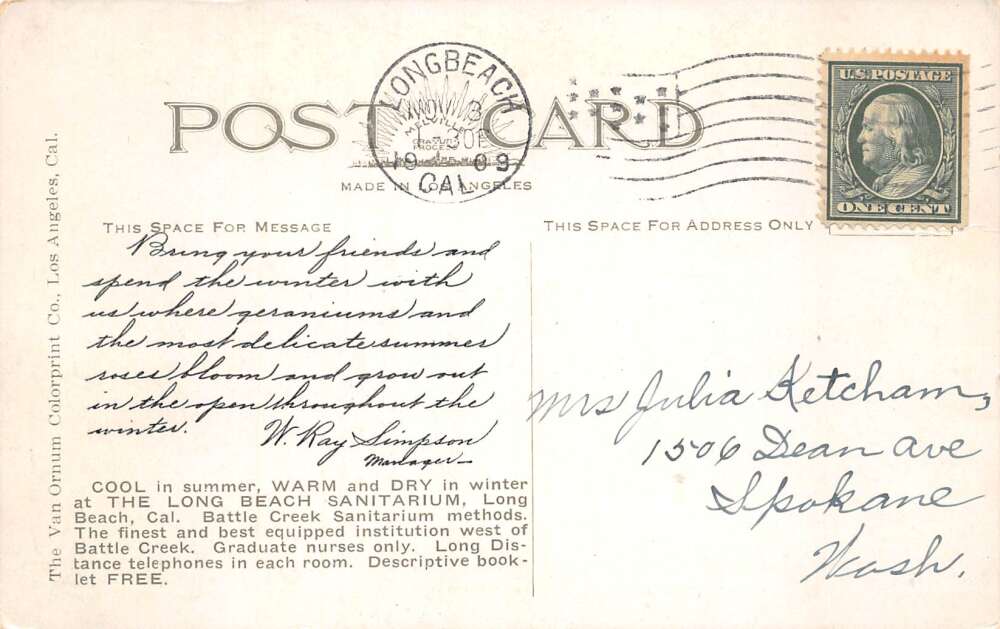 POST CARD
LONG BEACH
CAL
MADE IN LOS ANGELES
U.S. POSTAGE
ONE CENT
The Van Ornum Colorprint Co., Los Angeles, Cal.
THIS SPACE FOR MESSAGE
THIS SPACE FOR ADDRESS ONLY
Bring your friends and
spend the winter with
us where geraniums and
the most delicate summer
roses bloom and grow out
in the open throughout the
winter.
W. Ray Simpson
Manager
COOL in summer, WARM and DRY in winter
at THE LONG BEACH SANITARIUM, Long
Beach, Cal. Battle Creek Sanitarium methods.
The finest and best equipped institution west of
Battle Creek. Graduate nurses only. Long Dis-
tance telephones in each room. Descriptive book-
let FREE.
Mrs Julia Ketcham,
1506 Dean Ave
Spokane
Wash.